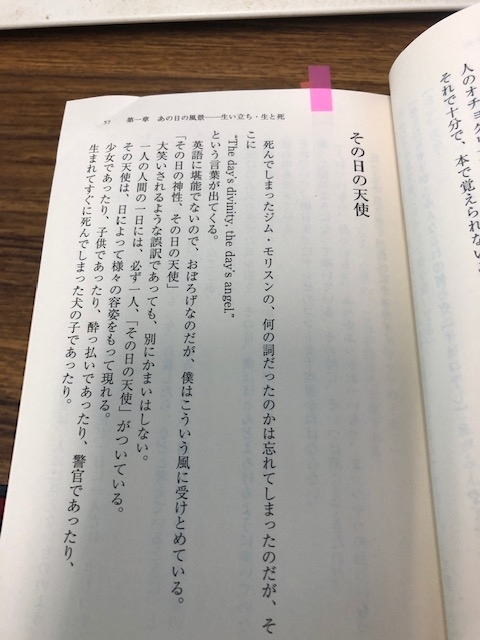 人のオチヨ
それで十分で、本で覚えられない
57 第一章 あの日の風景――生い立ち・生と死
その日の天使
死んでしまったジム・モリスンの、何の詞だったのかは忘れてしまったのだが、そ
こに
"The day's divinity, the day's angel."
という言葉が出てくる。
英語に堪能でないので、おぼろげなのだが、僕はこういう風に受けとめている。
「その日の神性、その日の天使」
大笑いされるような誤訳であっても、別にかまいはしない。
一人の人間の一日には、必ず一人、「その日の天使」がついている。
その天使は、日によって様々の容姿をもって現れる。
少女であったり、子供であったり、酔っ払いであったり、警官であったり、
生まれてすぐに死んでしまった犬の子であったり。